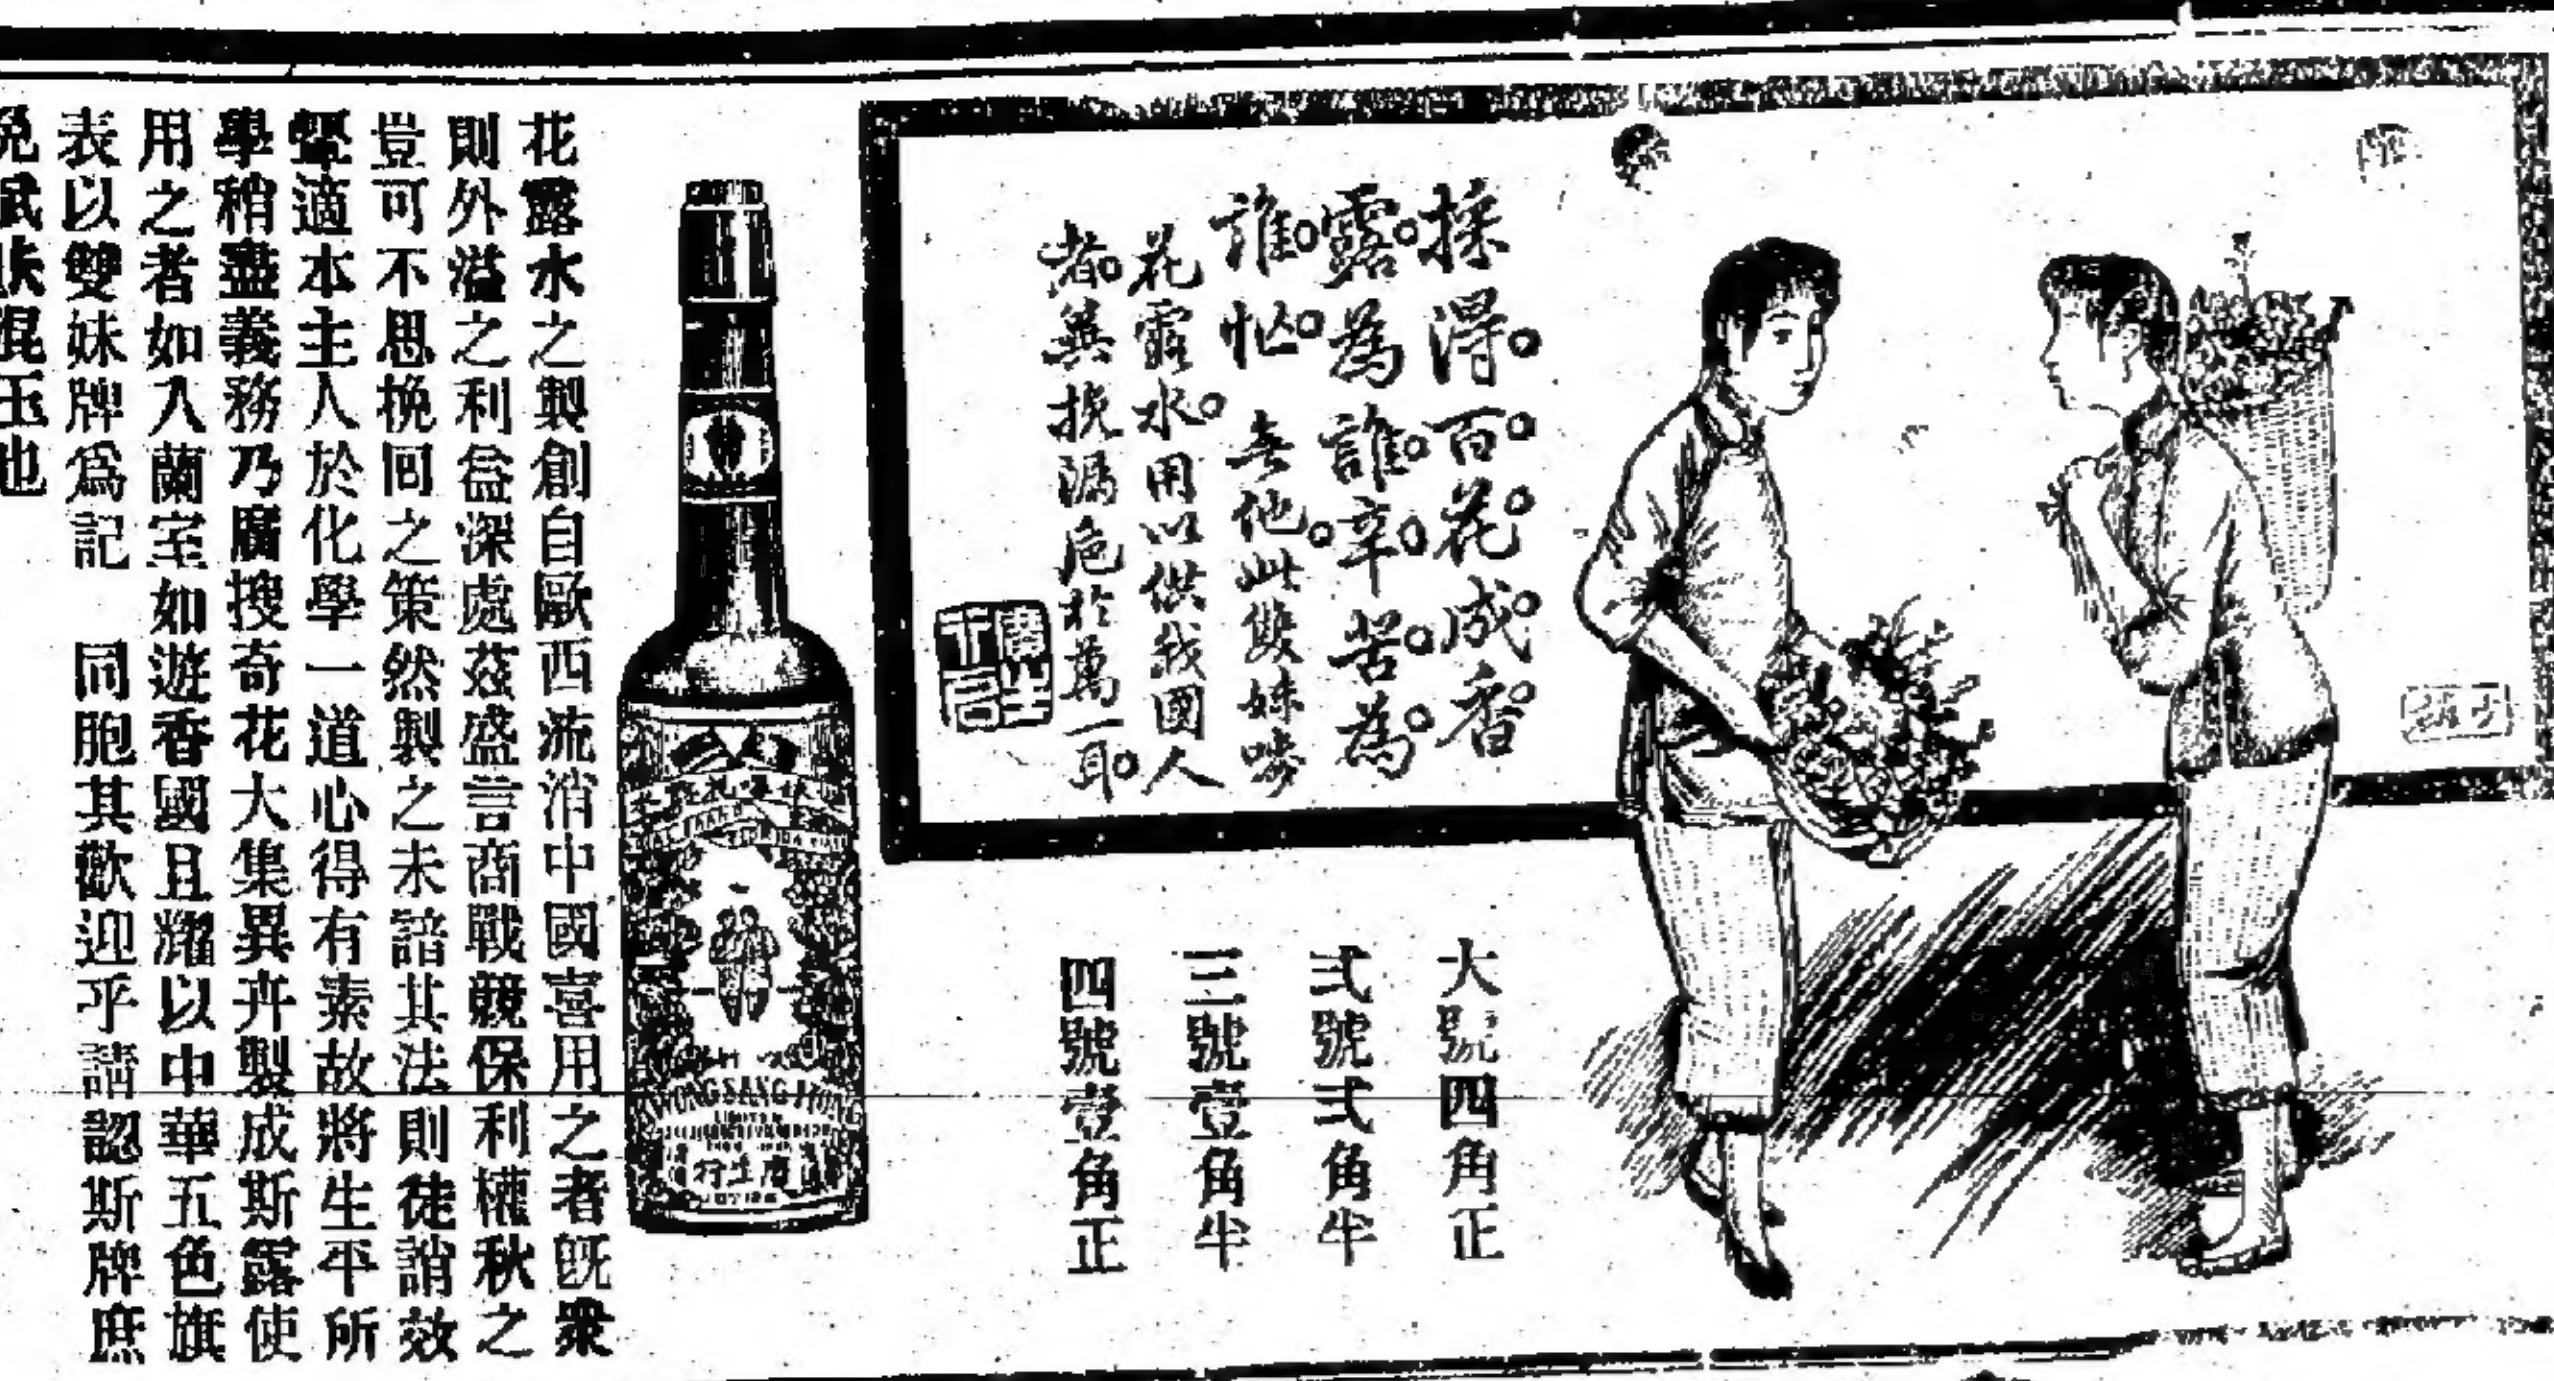 採得百花成香
露為誰辛苦為
誰忙 無他此雙妹嘜
花露水用以供我國人
者冀挽漏卮於萬一耳
廣生
干記
大號四角正
弍號弍角半
三號壹角半
四號壹角正
KWONG SANG HONG
LIMITED
廣生行
花露水之製創自歐西流消中國喜用之者旣衆
則外溢之利益深處茲盛言商戰競保利權秋之
豈可不思挽囘之策然製之未諳其法則徒誚效
顰適本主人於化學一道心得有素故將生平所
學稍盡義務乃廣搜奇花大集異卉製成斯露使
用之者如入蘭室如遊香國且耀以中華五色旗
表以雙妹牌爲記 同胞其歡迎乎請認斯牌庶
免珷玞混玉也